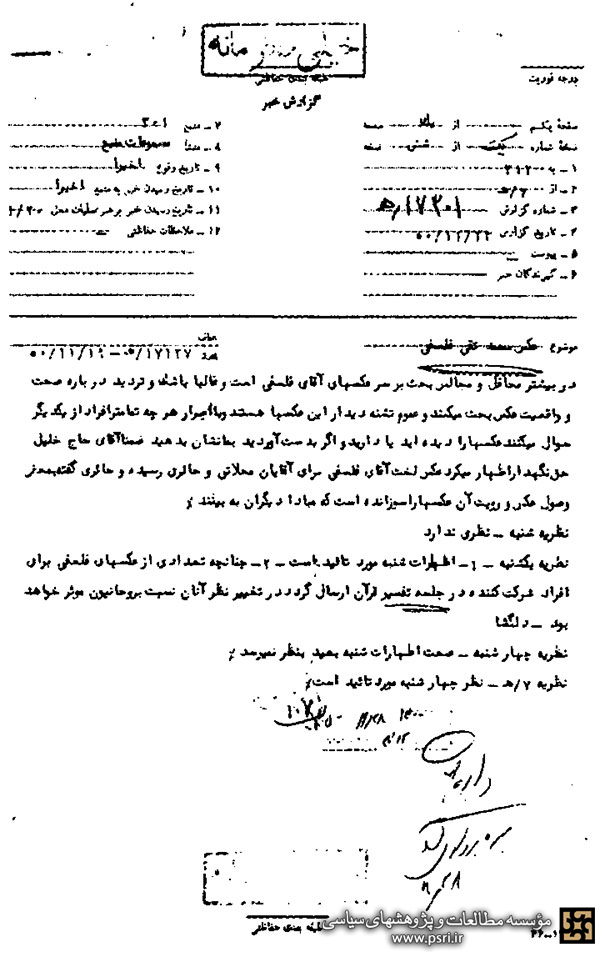 خیلی محرمانه
طبقه بندی حفاظتی
گزارش خبر
درجه فوریت
صفحه یکم از یک صفحه
نسخه شماره یک از شش نسخه
۱ ـ به ۳۱۲۰۰
۲ ـ از ۷/ه
۳ ـ شماره گزارش ۱۷۲۰۱/ه
۴ ـ تاریخ گزارش ۵۰/۱۲/۲۲
۵ ـ پیوست
۶ ـ گیرندگان خبر
۷ ـ منبع
۸ ـ منشا مسموعات منبع
۹ ـ تاریخ وقوع اخیرا
۱۰ ـ تاریخ رسیدن خبر به منبع اخیرا
۱۱ ـ تاریخ رسیدن خبر برهبر عملیات محل
۱۲ ـ ملاحظات حفاظتی
موضوع عکس محمد تقی فلسفی
۱۷۱۲۷/ه ـ ۵۰/۱۱/۱۹
در بیشتر محافل و مجالس بحث بر سر عکسهای آقای فلسفی است و غالبا باشک و تردید درباره صحت
و واقعیت عکس بحث میکنند و عموم تشنه دیدار این عکسها هستند وبااصرار هر چه تمامترافراد از یکدیگر
سوال میکنند عکسها را دیده اید یا دارید و اگر بدست آوردید بمانشان بدهید ضمنا آقای حاج خلیل
حق نگهدار اظهار میکرد عکس لخت آقای فلسفی برای آقایان محلاتی و حائری رسیده و حائری گفته بعد از
وصول عکس و رویت آن عکسها را سوزانده است که مبادا دیگران به بینند ٪
نظریه شنبه ـ نظری ندارد
نظریه یکشنبه ـ ۱ـ اظهارات شنبه مورد تائید است ـ ۲ـ چنانچه تعدادی از عکسهای فلسفی برای
افراد شرکت کننده در جلسه تفسیر قرآن ارسال گردد در تغییر نظر آنان نسبت بروحانیون موثر خواهد
بود ـ دلگشا
نظریه چهارشنبه ـ صحت اظهارات شنبه بعید بنظر نمیرسد ٪
نظریه ۷/ه ـ نظر چهارشنبه مورد تائید است٪
طبقه بندی حفاظتی
مؤسسه مطالعات و پژوهشهای سیاسی
www.psri.ir